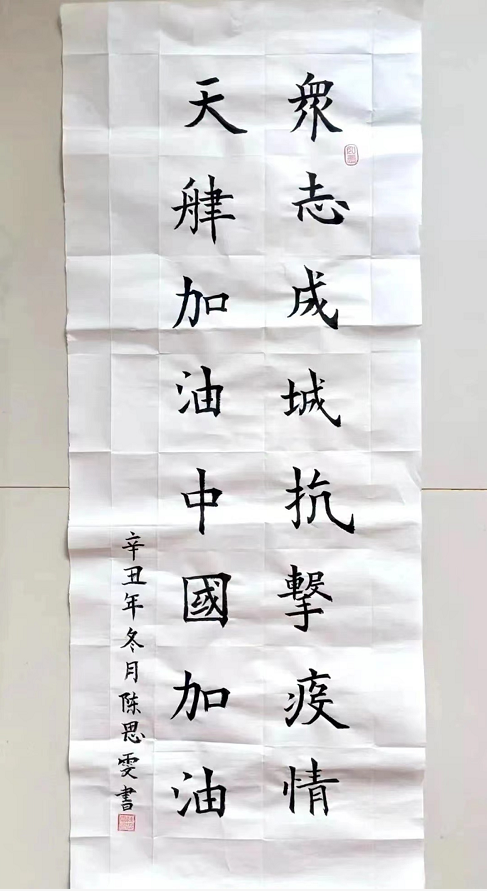 眾志成城抗擊疫情
天津加油中國加油
辛丑年冬月陈思雯書